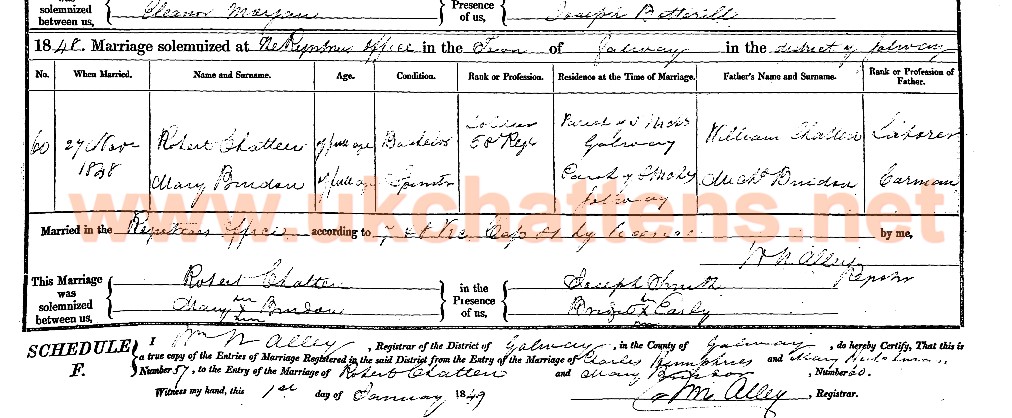 was solemnized between us, Eleanor Morgan Presence of us, Joseph Botterill
1848. Marriage solemnized at the Registrars office in the Town of Galway in the district of Galway
No. When Married. Name and Surname. Age. Condition. Rank or Profession. Residence at the Time of Marriage. Father's Name and Surname. Rank or Profession of Father.
60 27 Nov 1848 Robert Chatten of full age Bachelor Soldier 58 Regt Parish of St Nichs Galway William Chatten Laborer
Mary Burdon of full age Spinster Parish of St Nichs Galway Michl Burdon Carman
www.ukchattens.net
Married in the Registrars Office according to 7 & 8 Vic Cap 81 by licence by me,
Wm Alley
Registrar
This Marriage was solemnized between us, Robert Chatten in the Presence of us, Joseph Smith
Mary her x Burdon Bridget her x Early
SCHEDULE F. I Wm N Alley, Registrar of the District of Galway, in the County of Galway, do hereby Certify, That this is
a true copy of the Entries of Marriage Registered in the said District from the Entry of the Marriage of Charles Humphries and Mary
Number 57, to the Entry of the Marriage of Robert Chatten and Mary Burdon, Number 60.
Witness my hand, this 1st day of January 1849 Wm Alley, Registrar.